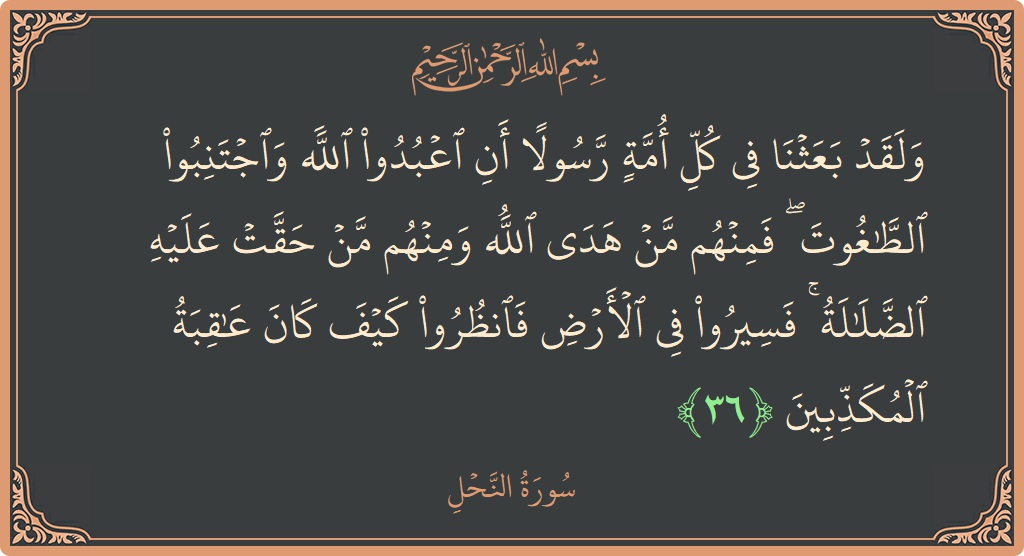 بِسْمِ اللهِ الرَّحْمٰنِ الرَّحِيْمِ
وَلَقَدۡ بَعَثۡنَا فِي كُلِّ أُمَّةٖ رَّسُولًا أَنِ ٱعۡبُدُواْ ٱللَّهَ وَٱجۡتَنِبُواْ
ٱلطَّٰغُوتَۖ فَمِنۡهُم مَّنۡ هَدَى ٱللَّهُ وَمِنۡهُم مَّنۡ حَقَّتۡ عَلَيۡهِ
ٱلضَّلَٰلَةُۚ فَسِيرُواْ فِي ٱلۡأَرۡضِ فَٱنظُرُواْ كَيۡفَ كَانَ عَٰقِبَةُ
ٱلۡمُكَذِّبِينَ ﴿٣٦﴾
سُورَةُ النَّحۡلِ